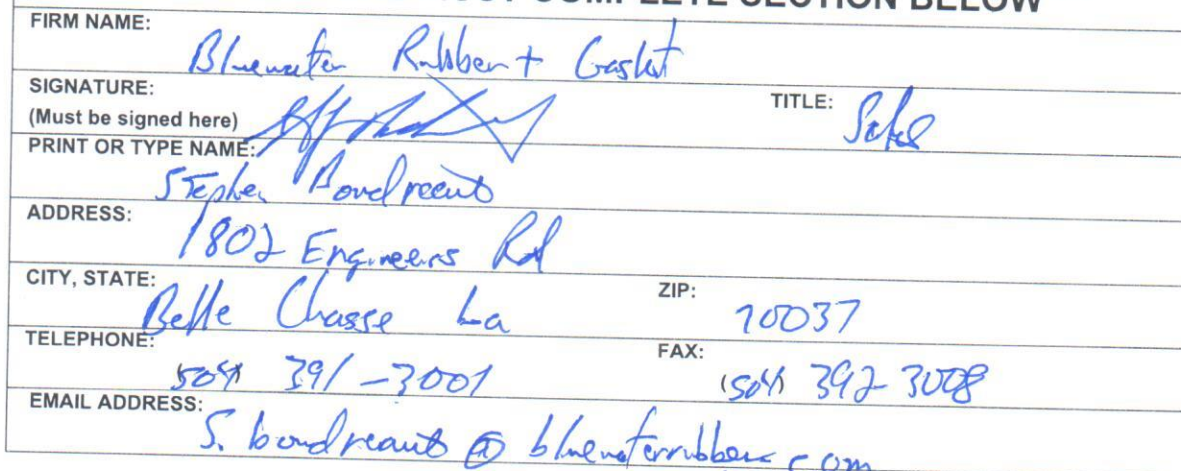 COMPLETE SECTION BELOW
FIRM NAME:
Bluewater Rubber + Gasket
SIGNATURE:
(Must be signed here)
TITLE: Sales
PRINT OR TYPE NAME:
Stephen Boudreaux
ADDRESS:
1802 Engineers Rd
CITY, STATE:
Belle Chasse La
ZIP:
70037
TELEPHONE:
(504) 391-3001
FAX:
(504) 392 3008
EMAIL ADDRESS:
S. boudreaux @ bluewaterrubber.com